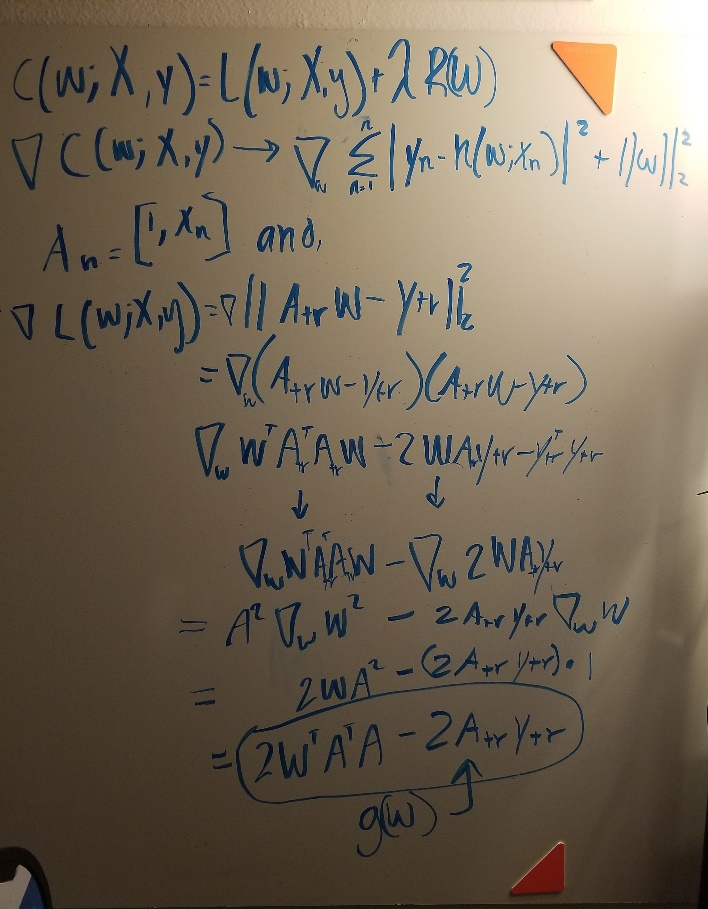 C(w; X, y) = L(w; X, y) + λ R(W)
∇ C(w; X, y) → ∇_w Σ_{n=1}^{n} |y_n - h(w; x_n)|² + ||w||₂²
A_n = [1, x_n] and,
∇ L(w; X, y) = ∇ || A_tr W - y_tr ||₂²
= ∇_w (A_tr w - y_tr)(A_tr w - y_tr)
∇_w W^T A_tr^T A_tr W - 2 W A_tr y_tr - y_tr^T y_tr
↓ ↓
∇_w W^T A_tr^T A_tr W - ∇_w 2 W A_tr y_tr
= A² ∇_w W² - 2 A_tr y_tr ∇_w W
= 2 W A² - (2 A_tr y_tr) · 1
= 2 W^T A^T A - 2 A_tr y_tr
g(w)